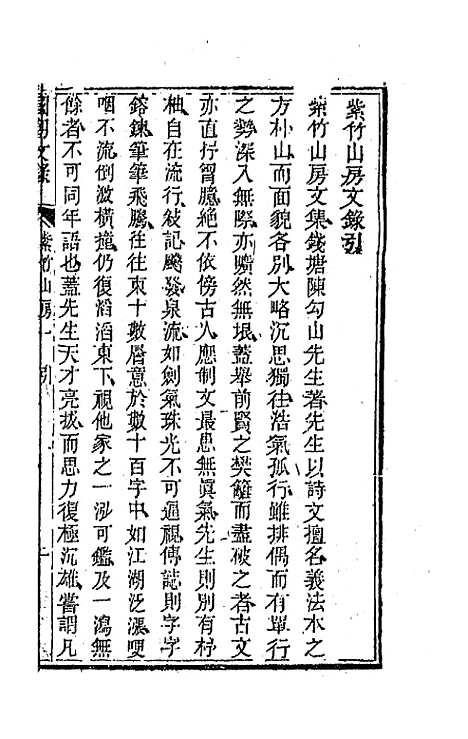 紫竹山房文錄引
紫竹山房文集錢塘陳勾山先生著先生以詩文擅名義法本之
方朴山而面貌各別大略沉思獨往浩氣孤行雖排偶而有單行
之勢深入無際亦曠然無垠蓋舉前賢之樊籬而盡破之者古文
亦直抒胷臆絕不依傍古人應制文最患無眞氣先生則別有杼
柚自在流行敍記飈發泉流如劍氣珠光不可逼視傳誌則字字
鎔鍊筆筆飛騰往往束十數層意於數十百字中如江湖泛漲哽
咽不流倒激橫撞仍復滔滔東下視他家之一泓可鑑及一瀉無
餘者不可同年語也蓋先生天才亮拔而思力復極沉雄嘗謂凡
國朝文錄 紫竹山房 引 一